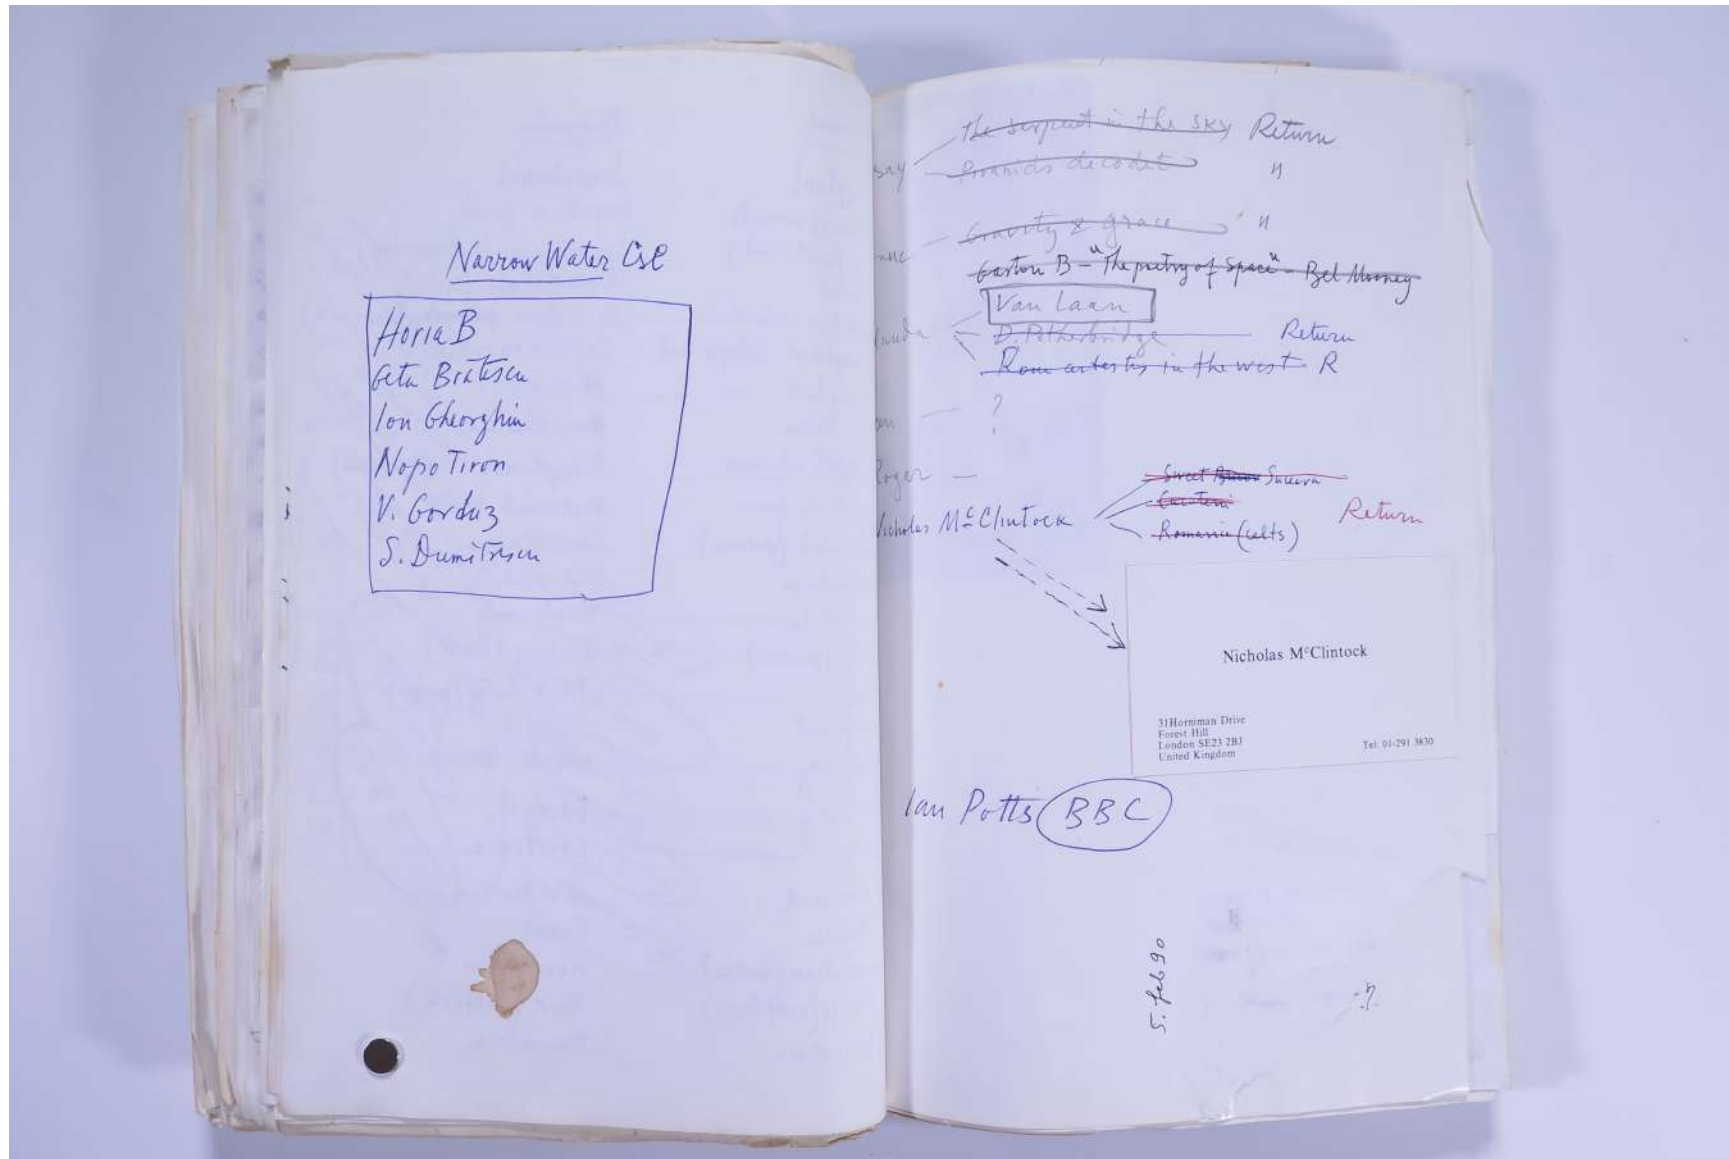 Narrow Water Csl
Horia B
Geta Bratescu
Ion Gheorghiu
Napo Tiron
V. Gorduz
S. Dumitrescu
The serpent in the sky Return
say Piramids decodet "
Gravity & grace "
Gaston B - "The poetry of Space" - Bel Mooney
Van Laan
landa D. Petherbridge Return
Rom artestis in the west R
?
Roger —
Sweet Suceava
Nicholas McClintock Return
Romania (celts)
Nicholas McClintock
31 Horniman Drive
Forest Hill
London SE23 2BJ
United Kingdom
Tel: 01-291 3830
Ian Potts BBC
5. feb 90